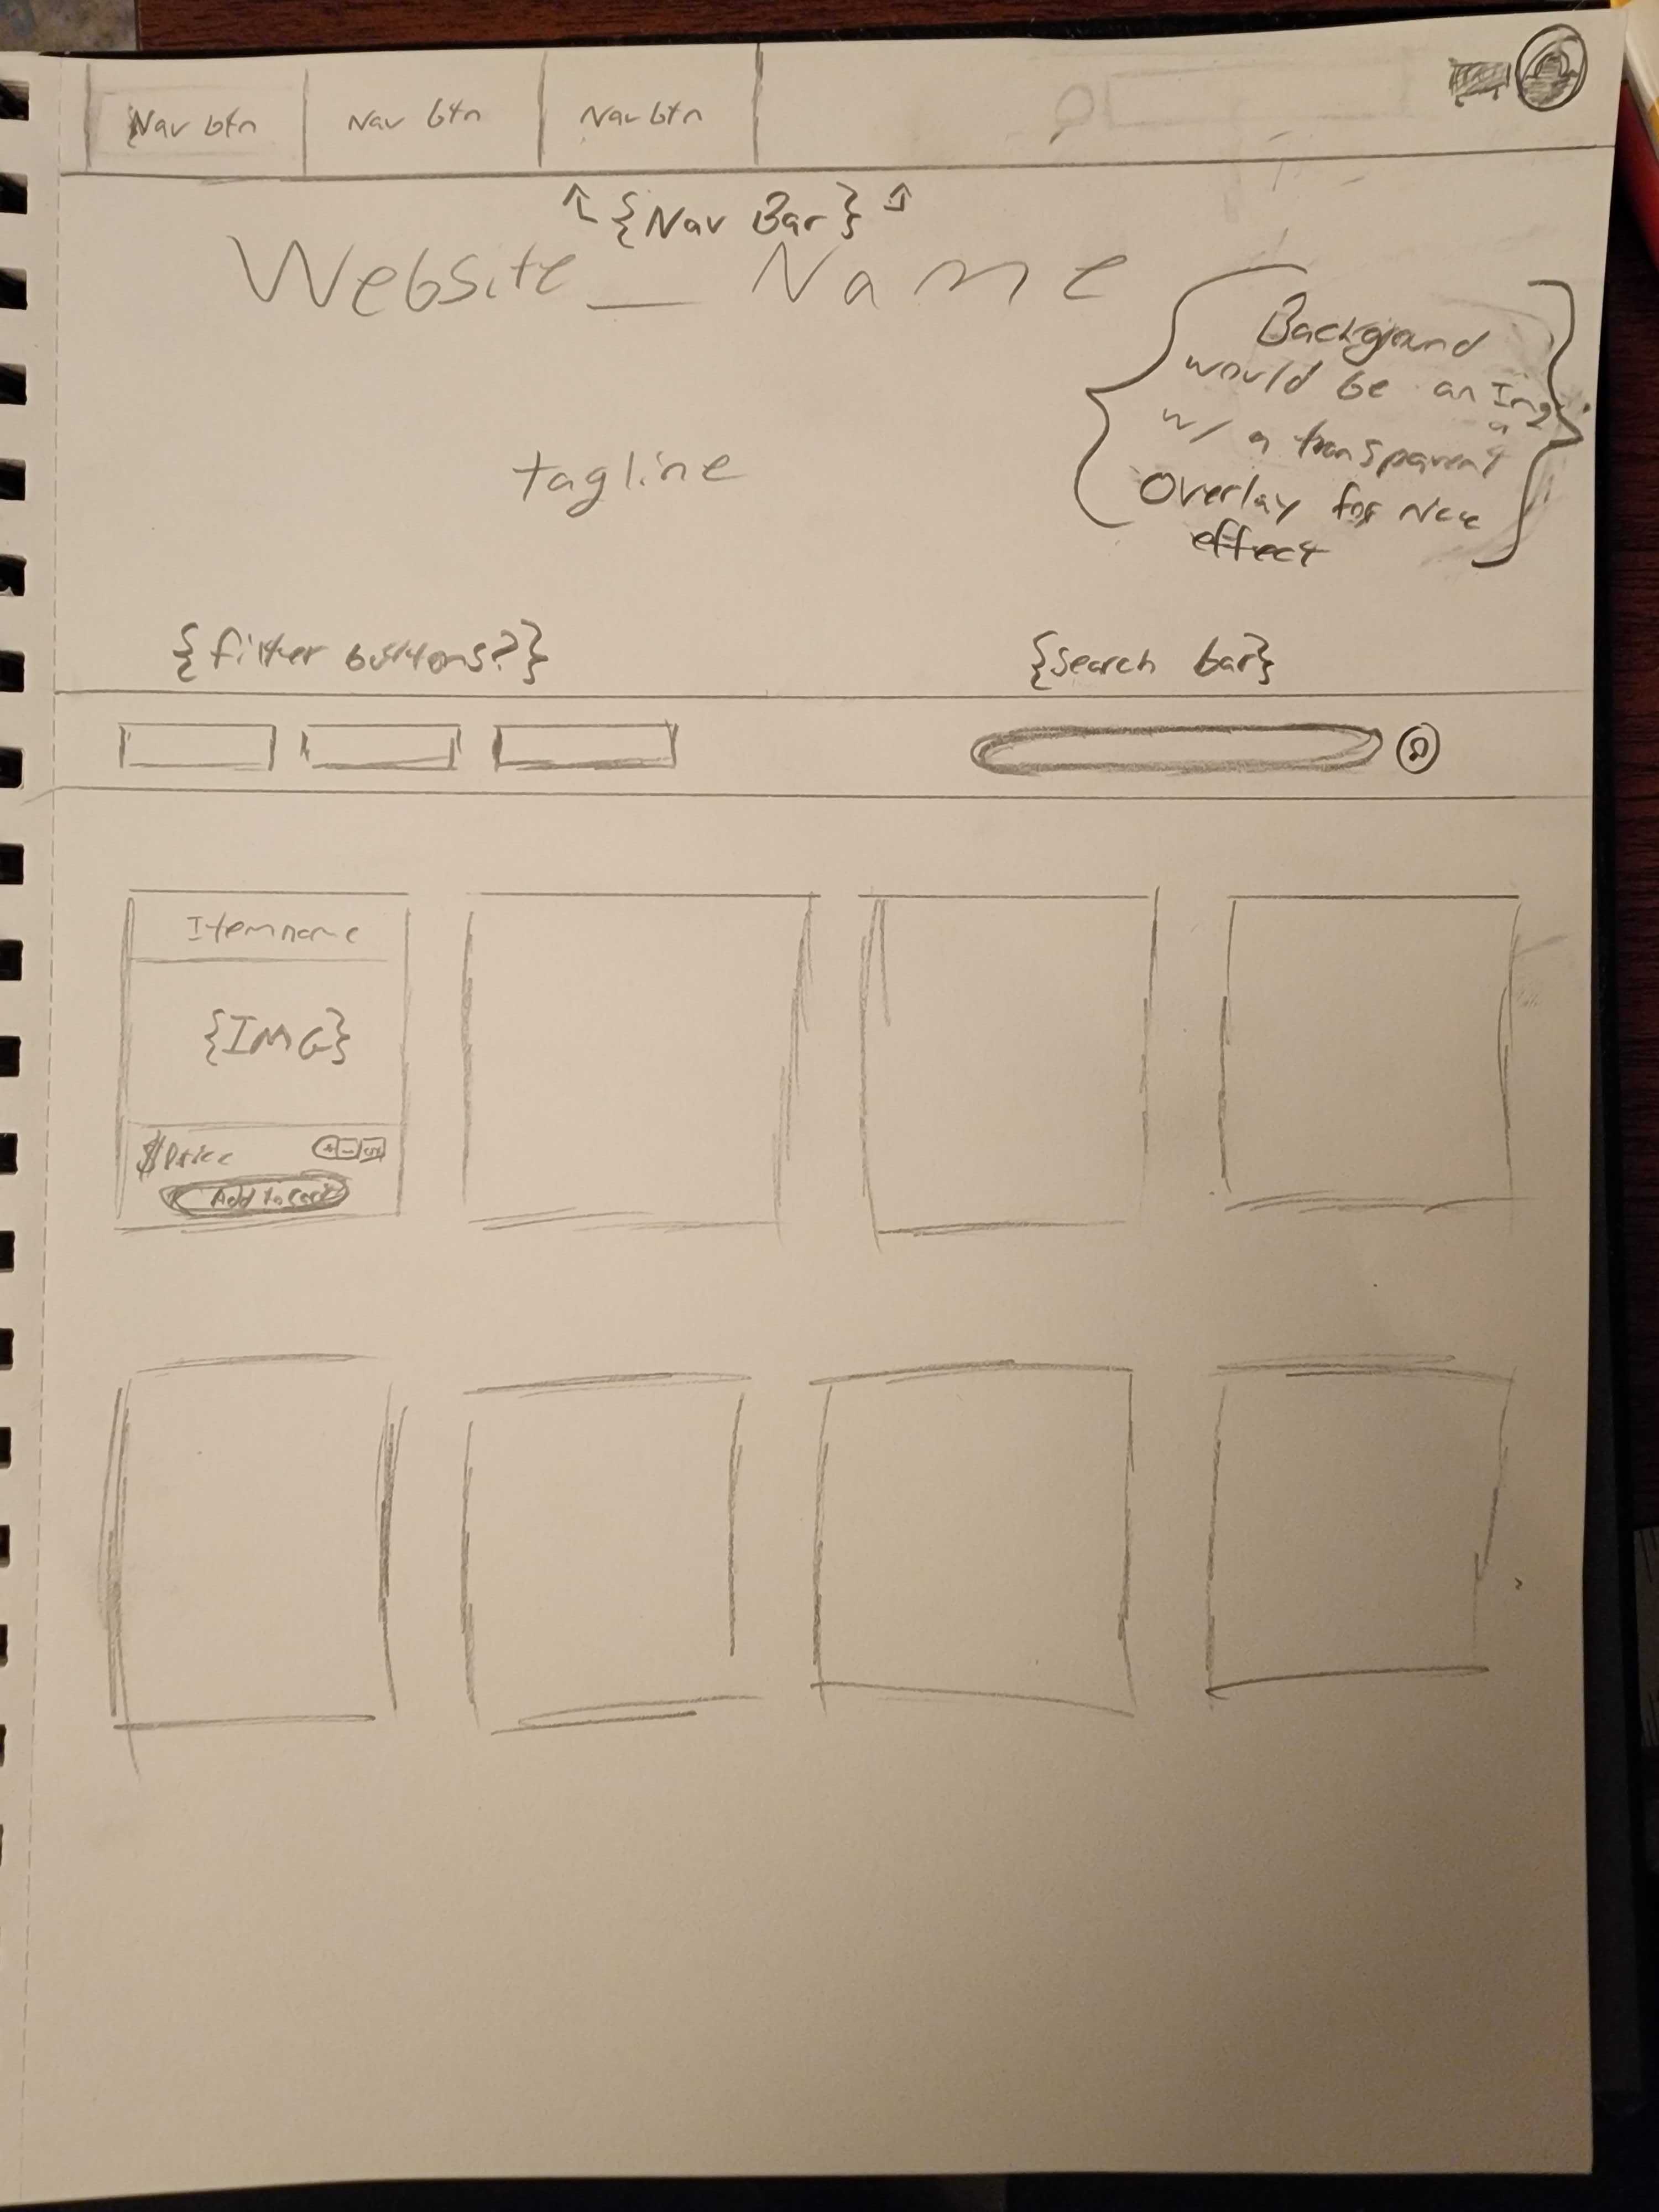 Nav btn
Nav btn
Nav btn
{Nav Bar}
Website_Name
Background
would be an Img
w/ a transparent
Overlay for Nice
effect
tagline
{filter buttons?}
{search bar}
Itemname
{IMG}
$Price
+ -
Add to cart